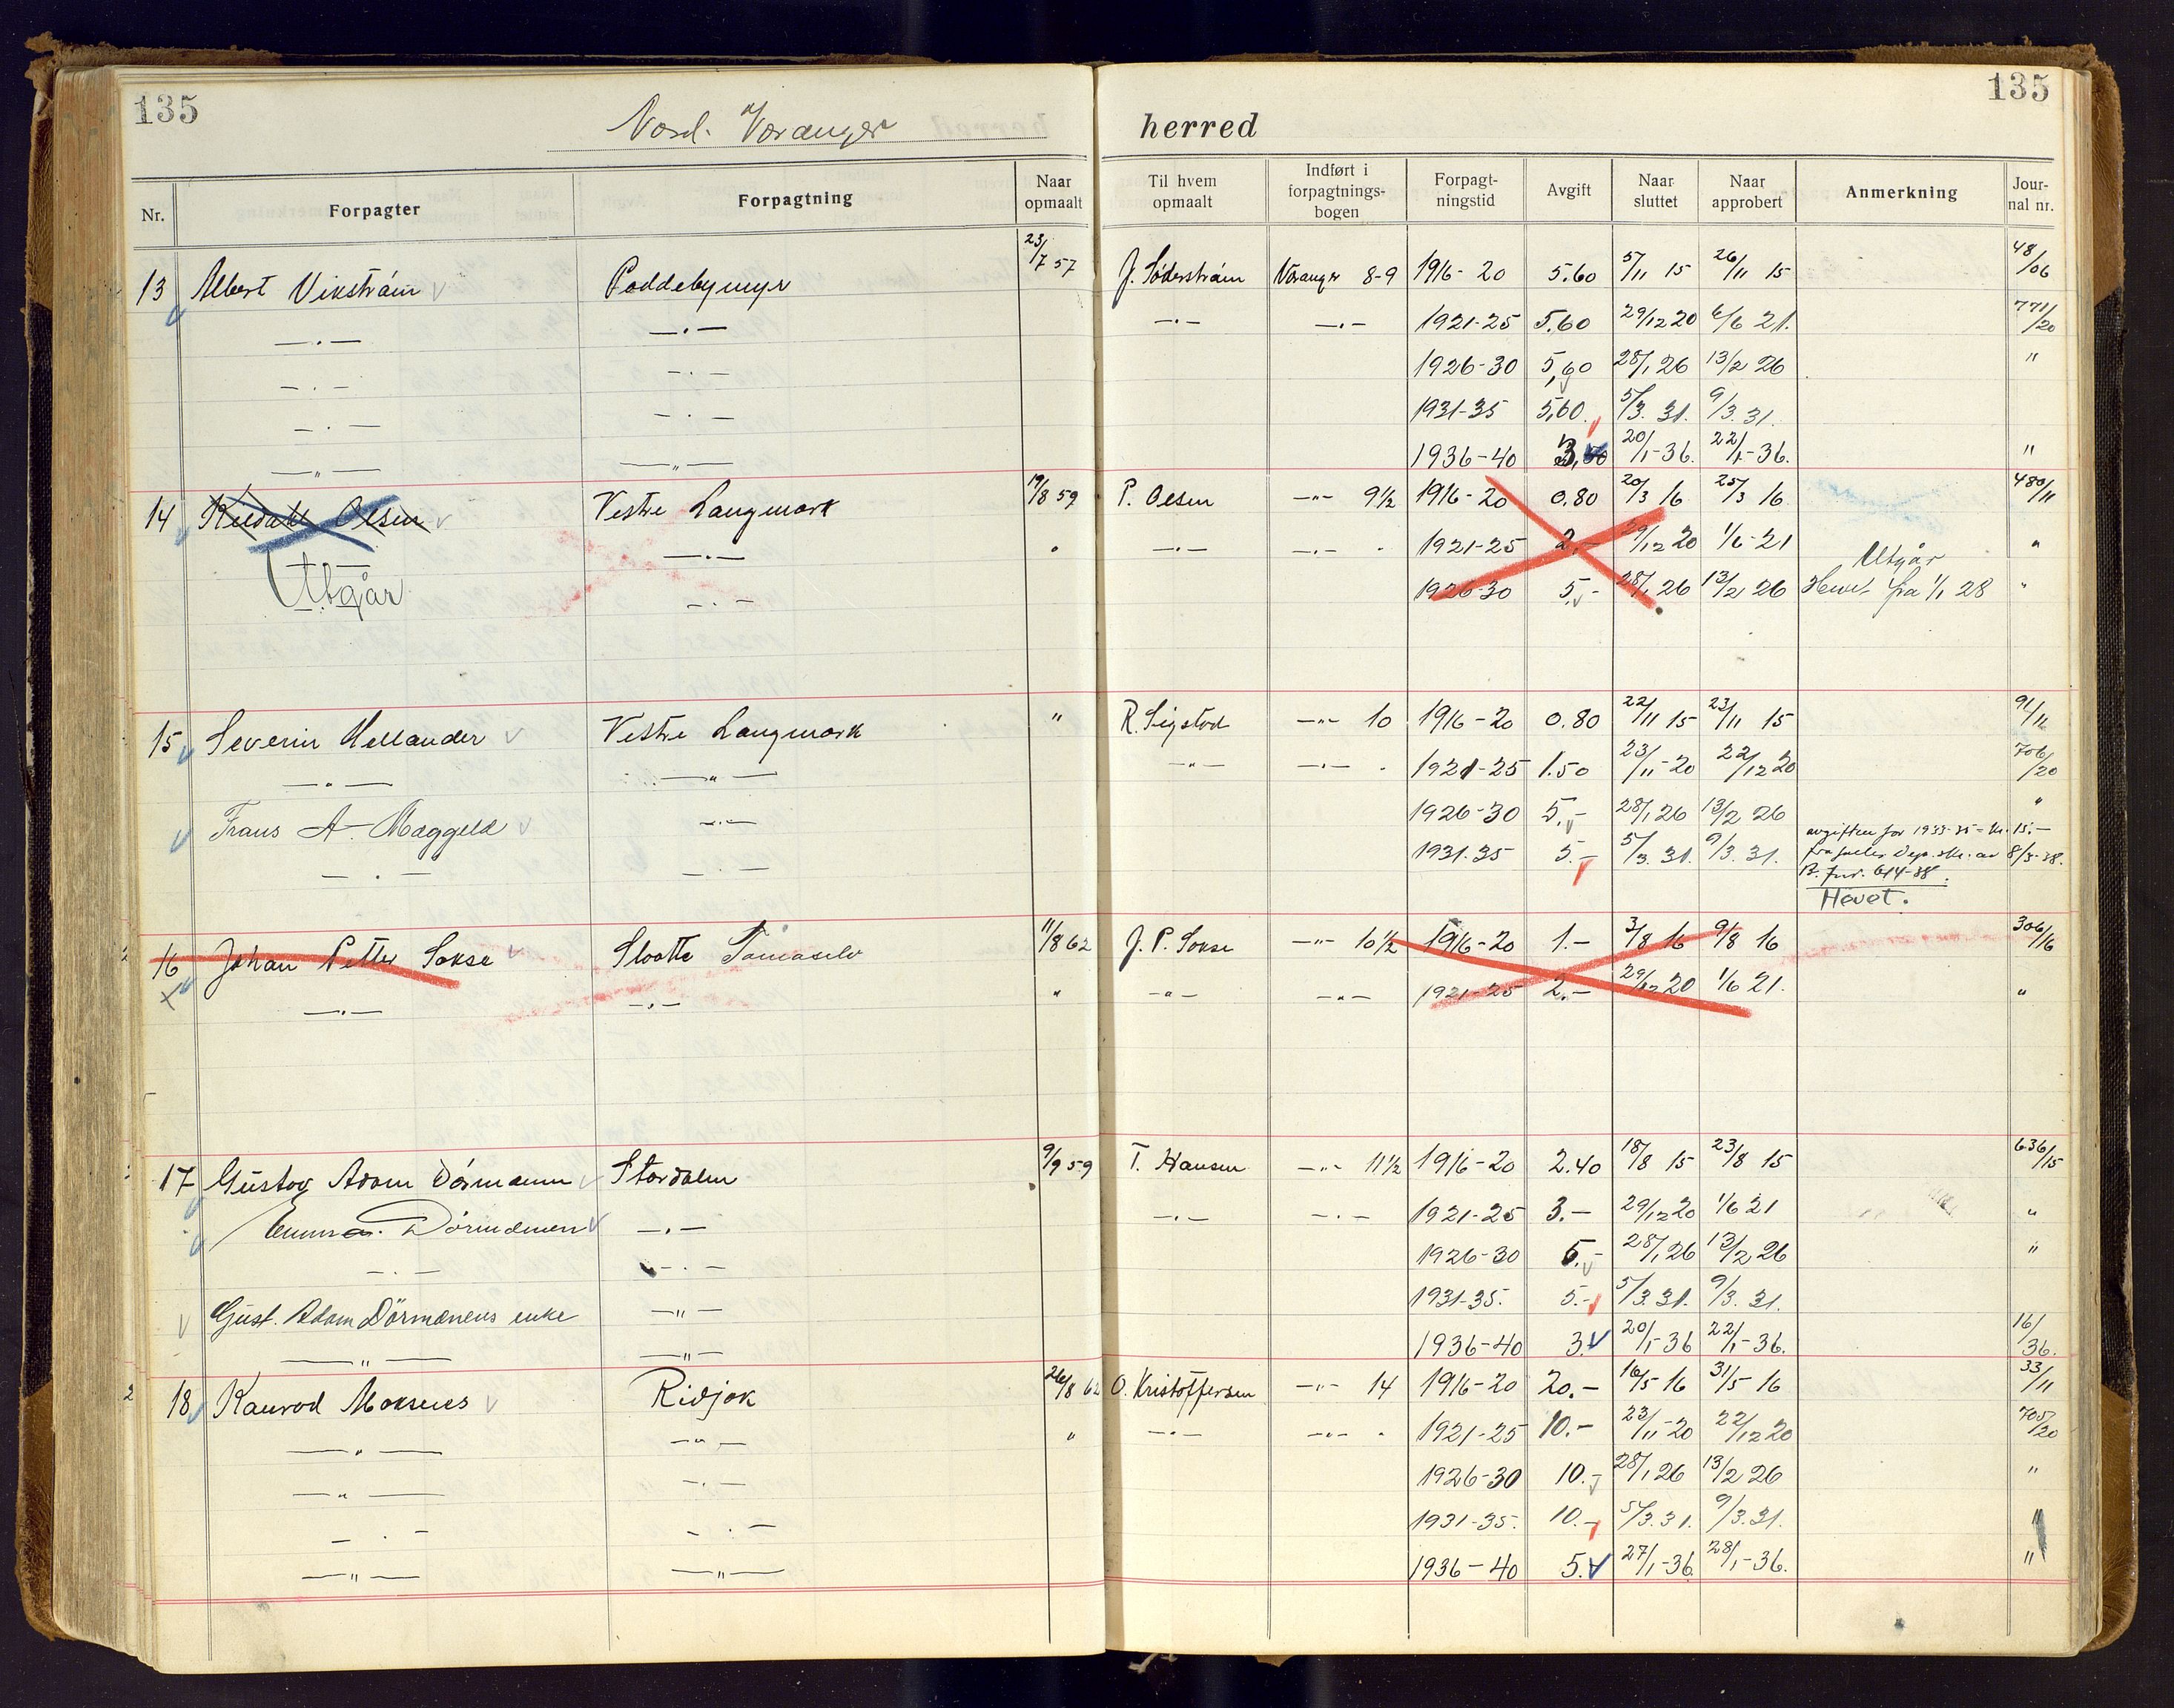 135
135
Nord-Varanger herred
Nr. Forpagter Forpagtning Naar opmaalt Til hvem opmaalt Indført i forpagtnings-bogen Forpagt-ningstid Avgift Naar sluttet Naar approbert Anmerkning Jour-nal nr.
13 Albert Vikström Paddebymyr 23/7 57 J. Söderström Varanger 8-9 1916-20 5.60 5/11 15 26/11 15 48/06
—"— —"— —"— —"— 1921-25 5.60 29/12 20 6/6 21. 771/20
—"— —"— 1926-30 5,60 28/1 26 13/2 26 "
—"— —"— 1931-35 5,60 5/3. 31. 9/3. 31.
—"— —"— 1936-40 20/1-36. 22/1-36. "
14 Olsen Vestre Langmark 19/8 59 P. Olsen —"— 9½ 1916-20 0.80 20/3 16 25/3 16 480/11
—"— —"— —"— 1921-25 2.- 29/12 20 1/6-21 "
Utgår —"— 1926-30 5.- 28/1 26 13/2 26 Utgår Hevet fra 1/1 28 "
15 Severin Hellander Vestre Langmark " R. Sigstad —"— 10 1916-20 0.80 22/11 15 23/11 15 9/11
—"— —"— —"— —"— 1921-25 1.50 23/11-20 22/12 20 706/20
Frans A. Maggeld —"— 1926-30 5.- 28/1 26 13/2 26 "
—"— —"— 1931-35 5.- 5/3. 31. 9/3. 31. avgiften for 1933-35 = kr. 15.-
av 8/3-38.
614-38.
Hevet.
16 Johan Petter Sokse Slaatte 11/8 62 J. P. Sokse —"— 10½ 1916-20 1.- 3/8 16 9/8 16 306/16
—"— —"— " —"— —"— 1921-25 2.- 29/12 20 1/6 21. "
17 Gustav Adam Dørmænen Stordalen 9/9 59 T. Hansen —"— 11½ 1916-20 2.40 18/8 15 23/8 15 636/15
Emma Dørmænen —"— —"— —"— 1921-25 3.- 29/12 20 1/6 21 "
—"— —"— 1926-30 5.- 28/1 26 13/2 26 "
Gust. Adam Dörmænens enke —"— 1931-35. 5.- 5/3. 31. 9/3. 31.
—"— —"— 1936-40 3. 20/1-36 22/1-36. 16/36.
18 Konrad Moksnes Ridjok 26/8 62 O. Kristoffersen —"— 14 1916-20 20.- 16/5 16 31/5 16 33/11
—"— —"— " —"— —"— 1921-25 10.- 23/11-20 22/12 20 705/20
—"— —"— 1926-30 10.- 28/1 26 13/2 26 "
—"— —"— 1931-35. 10.- 5/3. 31. 9/3. 31. "
—"— —"— 1936-40 5. 27/1-36. 28/1-36. "